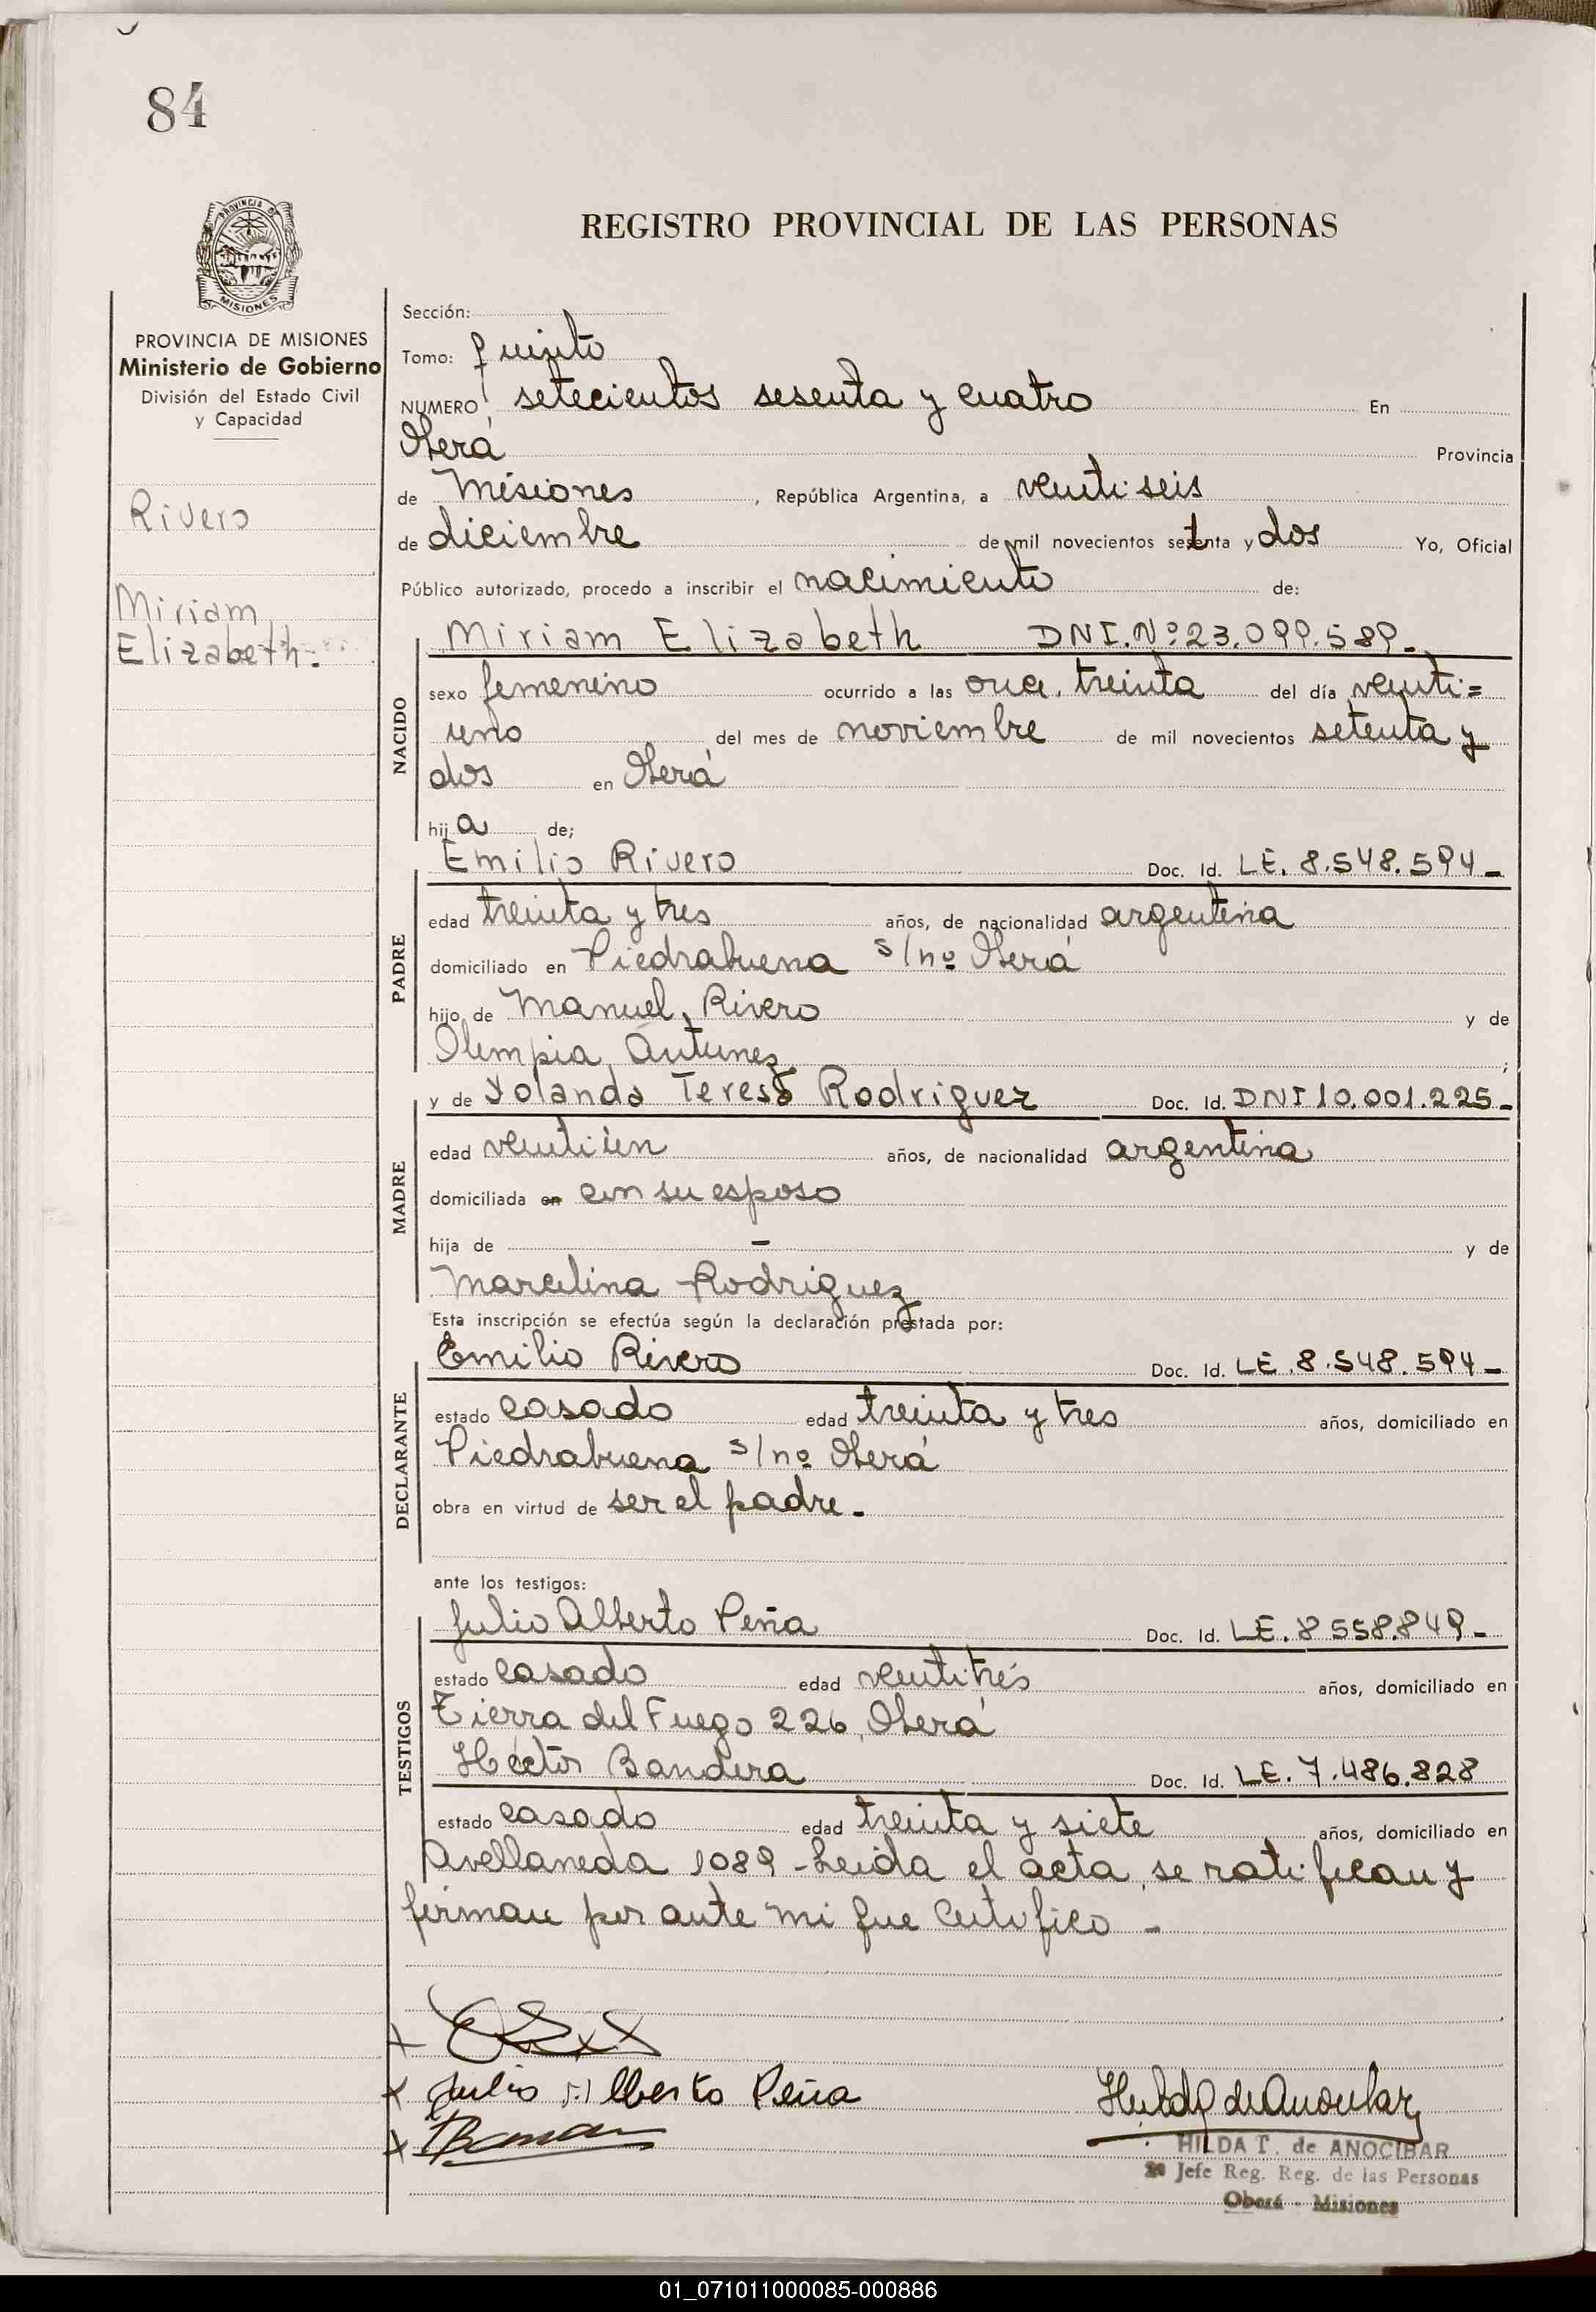 84
PROVINCIA DE
MISIONES
REGISTRO PROVINCIAL DE LAS PERSONAS
PROVINCIA DE MISIONES
Ministerio de Gobierno
División del Estado Civil
y Capacidad
Rivero
Miriam
Elizabeth.
Sección:
Tomo: quinto
NUMERO setecientos sesenta y cuatro En
Oberá Provincia
de Misiones, República Argentina, a veinti seis
de diciembre de mil novecientos setenta y dos Yo, Oficial
Público autorizado, procedo a inscribir el nacimiento de:
Miriam Elizabeth DNI. Nº 23.099.589.-
NACIDO
sexo femenino ocurrido a las once. treinta del día veinti=
uno del mes de noviembre de mil novecientos setenta y
dos en Oberá
hija de;
Emilio Rivero Doc. Id. LE. 8.548.594-
PADRE
edad treinta y tres años, de nacionalidad argentina
domiciliado en Piedrabuena s/nº Oberá
hijo de Manuel Rivero y de
Olimpia Antunez;
y de Yolanda Teresa Rodriguez Doc. Id. DNI 10.001.225-
MADRE
edad veintiún años, de nacionalidad argentina
domiciliada en con su esposo
hija de - y de
Marcelina Rodriguez
Esta inscripción se efectúa según la declaración prestada por:
Emilio Rivero Doc. Id. LE. 8.548.594-
DECLARANTE
estado casado edad treinta y tres años, domiciliado en
Piedrabuena s/nº Oberá
obra en virtud de ser el padre.-
ante los testigos:
Julio Alberto Peña Doc. Id. LE. 8558.849-
TESTIGOS
estado casado edad veintitrés años, domiciliado en
Tierra del Fuego 226, Oberá
Héctor Bandera Doc. Id. LE. 7.486.828
estado casado edad treinta y siete años, domiciliado en
Avellaneda 1089 - Leida el acta, se ratifican y
firman por ante mi que certifico -
Julio Alberto Peña
Hilda de Anocibar
HILDA T. de ANOCIBAR
Jefe Reg. Reg. de las Personas
Oberá - Misiones
01_071011000085-000886